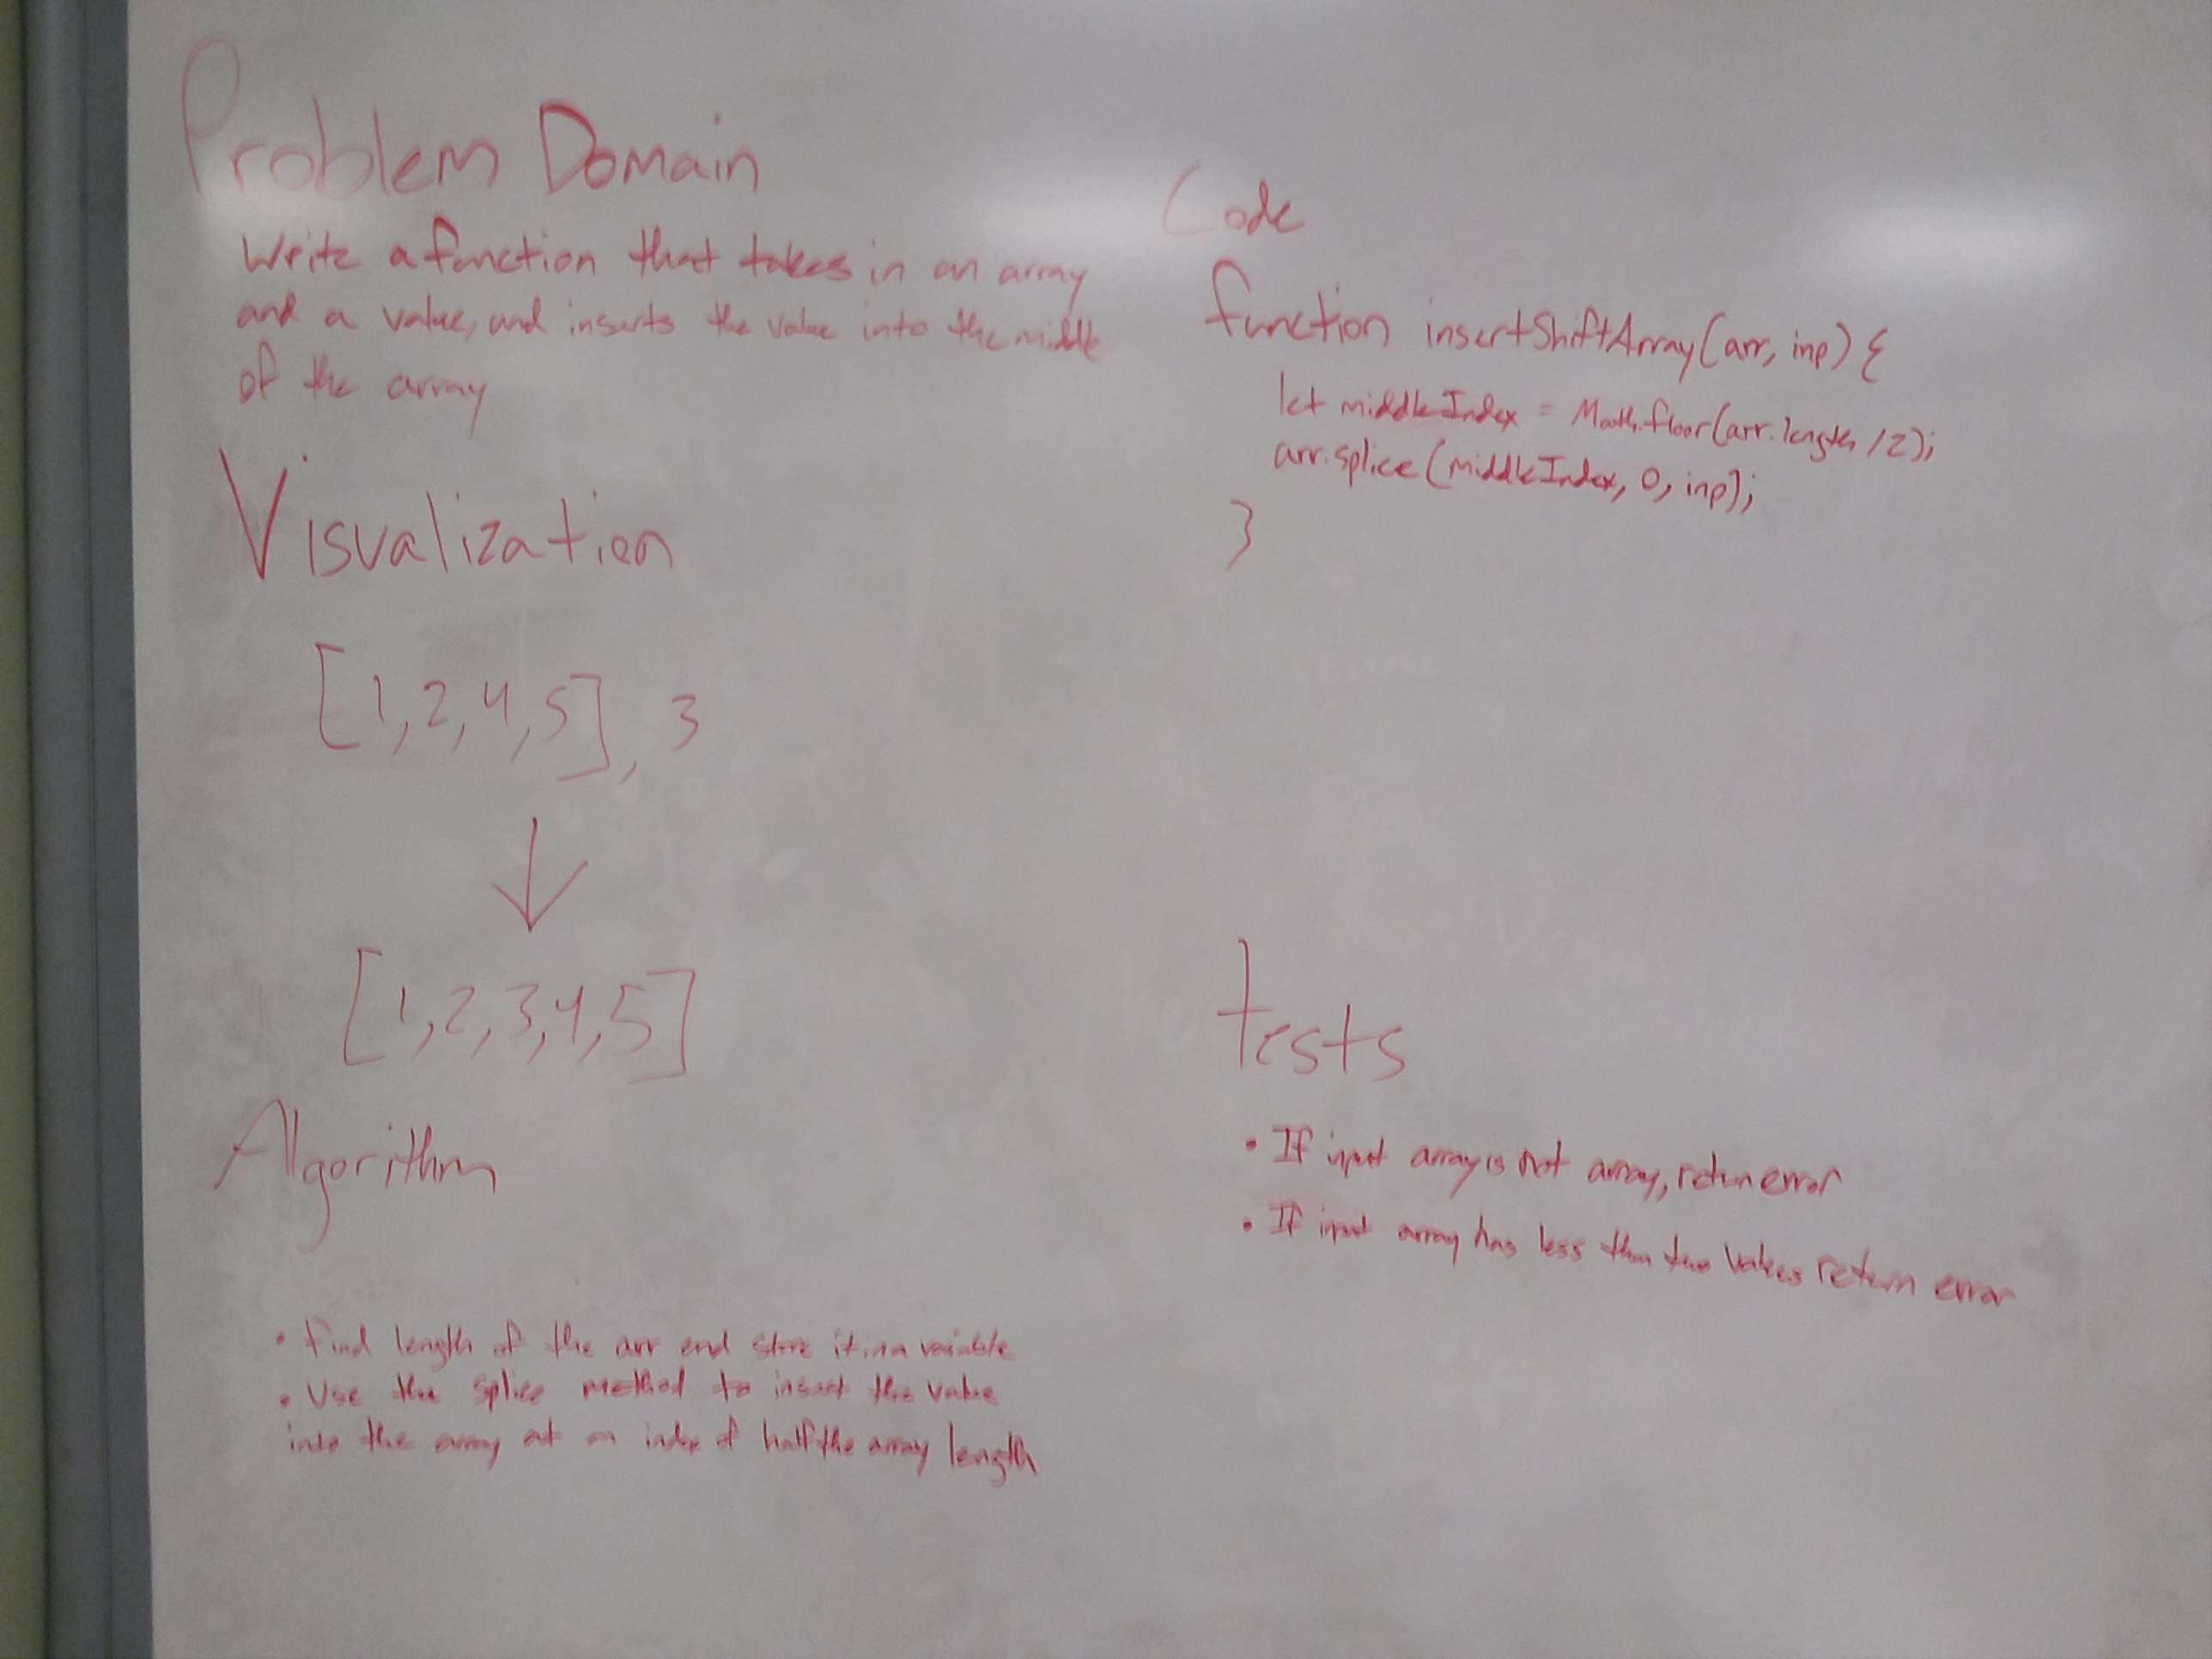 Problem Domain
Write a function that takes in an array
and a value, and inserts the value into the middle
of the array
Visualization
[1,2,4,5], 3
[1,2,3,4,5]
Algorithm
• Find length of the arr and store it in a variable
• Use the splice method to insert the value
into the array at an index of half the array length
Code
function insertShiftArray(arr, inp) {
let middleIndex = Math.floor(arr.length /2);
arr.splice(middleIndex, 0, inp);
}
tests
• If input array is not array, return error
• If input array has less than two values return error